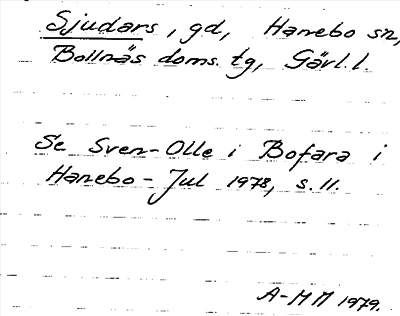 Sjudars, gd, Hanebo sn,
Bollnäs doms. tg, Gävl. l.
Se Sven-Olle i Bofara i
Hanebo - Jul 1978, s. 11.
A-MM 1979.